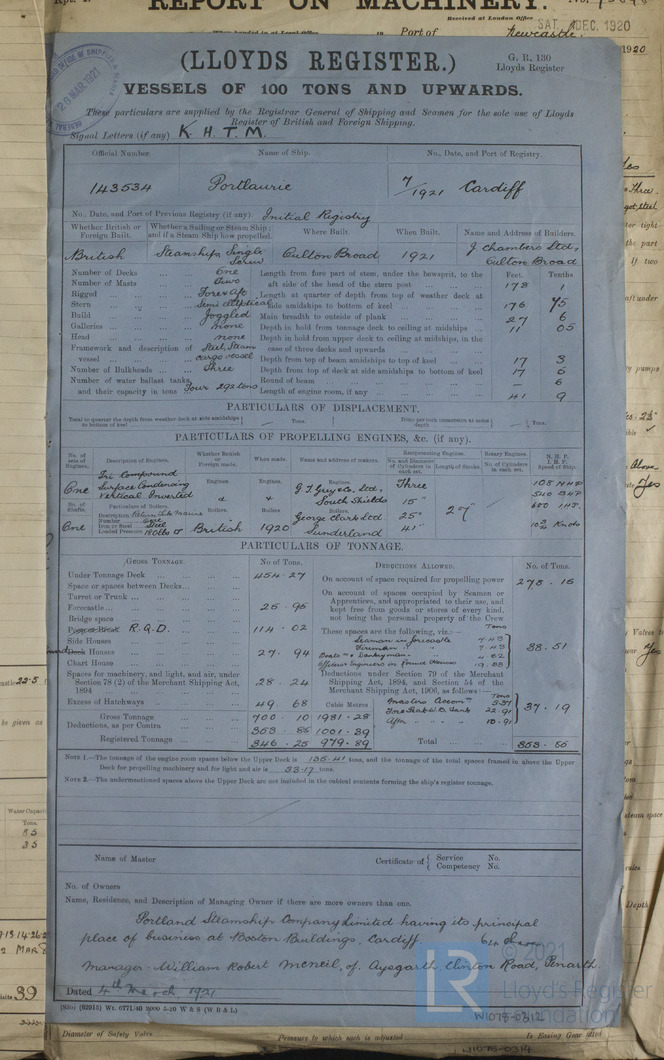 REPORT ON MACHINERY.
Received at London Office SAT. DEC. 1920
Port of Newcastle
(LLOYDS REGISTER.)
G. R. 130
Lloyds Register
VESSELS OF 100 TONS AND UPWARDS.
These particulars are supplied by the Registrar General of Shipping and Seamen for the sole use of Lloyds
Register of British and Foreign Shipping.
Signal Letters (if any) K. H. T. M.
Official Number. Name of Ship. No., Date, and Port of Registry.
143534 Portlaurie 7/1921 Cardiff
No., Date, and Port of Previous Registry (if any). Initial Registry
Whether British or Foreign Built. Whether a Sailing or Steam Ship; and if a Steam Ship how propelled. Where Built. When Built. Name and Address of Builders.
British Steamship, Single Screw Oulton Broad 1921 J. Chambers Ltd, Oulton Broad
Feet. Tenths
Number of Decks One Length from fore part of stem, under the bowsprit, to the
Number of Masts Two aft side of the head of the stern post 178 1
Rigged Fore & Aft Length at quarter of depth from top of weather deck at
Stern Semi elliptical side amidships to bottom of keel 176 75
Build Joggled Main breadth to outside of plank 27 6
Galleries none Depth in hold from tonnage deck to ceiling at midships 11 05
Head none Depth in hold from upper deck to ceiling at midships, in the
Framework and description of vessel Steel, Steam cargo vessel case of three decks and upwards
Depth from top of beam amidships to top of keel 17 3
Number of Bulkheads Three Depth from top of deck at side amidships to bottom of keel 17
Number of water ballast tanks, Round of beam – 6
and their capacity in tons Four 292 tons Length of engine room, if any 41 9
PARTICULARS OF DISPLACEMENT.
Total to quarter the depth from weather deck at side amidships to bottom of keel Tons. Ditto per inch immersion at same depth Tons.
PARTICULARS OF PROPELLING ENGINES, &c. (if any).
No. of sets of Engines. Description of Engines. Whether British or Foreign made. When made. Name and address of makers. Reciprocating Engines. No. and Diameter of Cylinders in each set. Length of Stroke. Rotary Engines. No. of Cylinders in each set. N. H. P. I. H. P. Speed of Ship.
One Tri Compound Surface Condensing Vertical Inverted Engines. Engines. Engines. G. T. Grey & Co. Ltd, South Shields Three 15" 108 NHP
540 BHP
600 IHP
No. of Shafts. Particulars of Boilers. Boilers. Boilers. Boilers. 25" 27"
One Description Number One Iron or Steel Steel Loaded Pressure 180 lbs British 1920 George Clark Ltd. Sunderland 41" Knots
PARTICULARS OF TONNAGE.
GROSS TONNAGE. No of Tons. DEDUCTIONS ALLOWED. No. of Tons.
Under Tonnage Deck 454.27 On account of space required for propelling power 278.15
Space or spaces between Decks On account of spaces occupied by Seamen or
Turret or Trunk Apprentices, and appropriated to their use, and
Forecastle 25.95 kept free from goods or stores of every kind,
Bridge space not being personal property of the Crew
R.Q.D. 114.02 These spaces are the following, viz.:— Tons
Side Houses Seamen in forecastle 7.43
Deck Houses 27.94 Firemen 7.43 38.51
Chart House
Spaces for machinery, and light, and air, under Section 78 (2) of the Merchant Shipping Act, 1894 28.24 Deductions under Section 79 of the Merchant Shipping Act, 1894, and Section 54 of the Merchant Shipping Act, 1906, as follows:—
Excess of Hatchways 49.68 Cubic Metres Masters Accom 3.37
Fore Peak W.B. Tank 22.91 37.19
Gross Tonnage 700.10 1981.28 After 10.91
Deductions, as per Contra 353.85 1001.39
Registered Tonnage 346.25 979.89 Total 353.85
NOTE 1.—The tonnage of the engine room spaces below the Upper Deck is 135.41 tons, and the tonnage of the total spaces framed in above the Upper
Deck for propelling machinery and for light and air is 33.17 tons.
NOTE 2.—The undermentioned spaces above the Upper Deck are not included in the cubical contents forming the ship's register tonnage.
Name of Master Certificate of { Service No. Competency No.
No. of Owners
Name, Residence, and Description of Managing Owner if there are more owners than one.
Portland Steamship Company Limited having its principal
place of business at Boston Buildings, Cardiff. 64 Shares
Manager - William Robert McNeil, of, Aysgarth, Clinton Road, Penarth.
Dated 4th March 1921
(930) (92915) Wt. 6771/40 2000 5-20 W & S (W R & L)
LR © 2021
Lloyd's Register
Foundation
W1075-0312
Diameter of Safety Valve Pressure to which each is adjusted Is Easing Gear fitted
W1075-0314